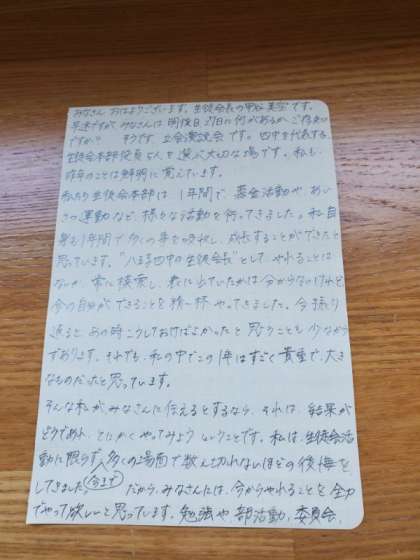 みなさん おはようございます。生徒会長の 美空です。
早速ですが、みなさんは 明後日 27日に何があるか ご存知
ですか? そうです 立会演説会です。四中を代表する
生徒会本部役員5人を選ぶ大切な場です。私も、
昨年のことは鮮明に覚えています。
私たち生徒会本部は 1年間で、募金活動や あい
さつ運動など、様々な活動を行ってきました。私自
身も1年間で多くの事を吸収し、成長することができたと
思っています。"八王子四中の生徒会長"として、やれることは
ないか 常に模索し、表に出ていたかは分からないけれど
今の自分ができることを精一杯やってきました。今振り
返ると あの時こうしておけばよかったと思うことも少なから
ずあります。それでも、私の中でこの1年はすごく貴重で、大き
なものだったと思っています。
そんな私がみなさんに伝えるとするなら、それは、結果が
どうであれ、とにかくやってみよう ということです。私は、生徒会活
動に限らず、多くの場面で数え切れないほどの後悔を
してきました 今まで だから、みなさんには、今からやれることを全力
でやって欲しいと思っています。勉強や、部活動、委員会、